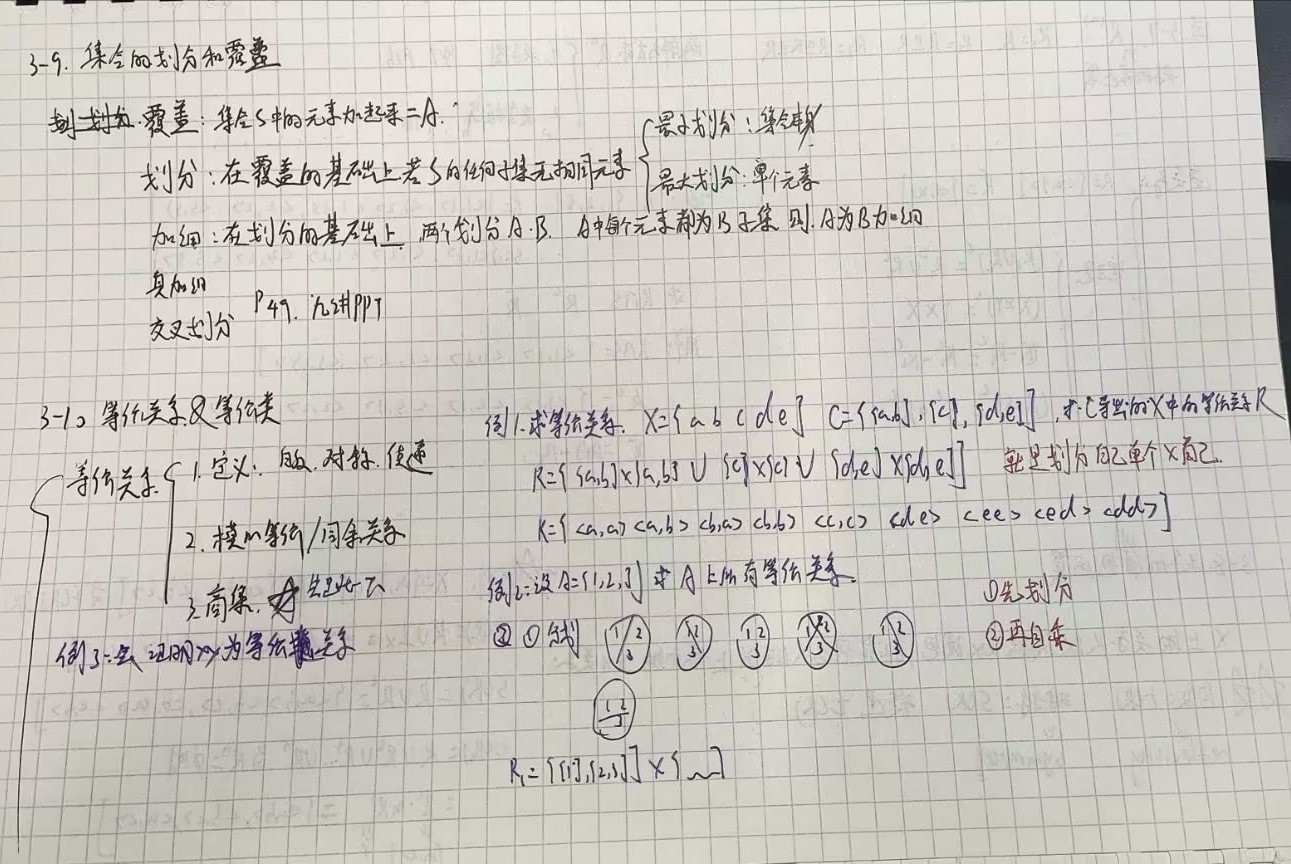 3-9. 集合的划分和覆盖
覆盖：集合S中的元素加起来=A.
划分：在覆盖的基础上若S的任何子集无相同元素
最小划分：集合本身
最大划分：单个元素
加细：在划分的基础上,两个划分A.B. A中每个元素都为B子集 则.A为B加细
真加细
交叉划分 P49. PPT
3-10 等价关系&等价类
等价关系 1.定义：自反.对称.传递
2.模m等价/同余关系
3.商集.
例3: 证明xy为等价关系
例1.求等价关系. X={a b c d e} C={{a,b},{c},{d,e}},求C导出的X中的等价关系R
R={{a,b}×{a,b}∪{c}×{c}∪{d,e}×{d,e}} 就是划分自己单个×自己.
R={<a,a><a,b><b,a><b,b><c,c><d e><e e><e d><d d>}
例2:设A={1,2,3}求A上所有等价关系.
②①分划 1 2 3 1 2 3 1 2 3 1 2 3 1 2 3
①先划分
②再自乘
1 2 3
R₁={{1},{2,3}}×{ }